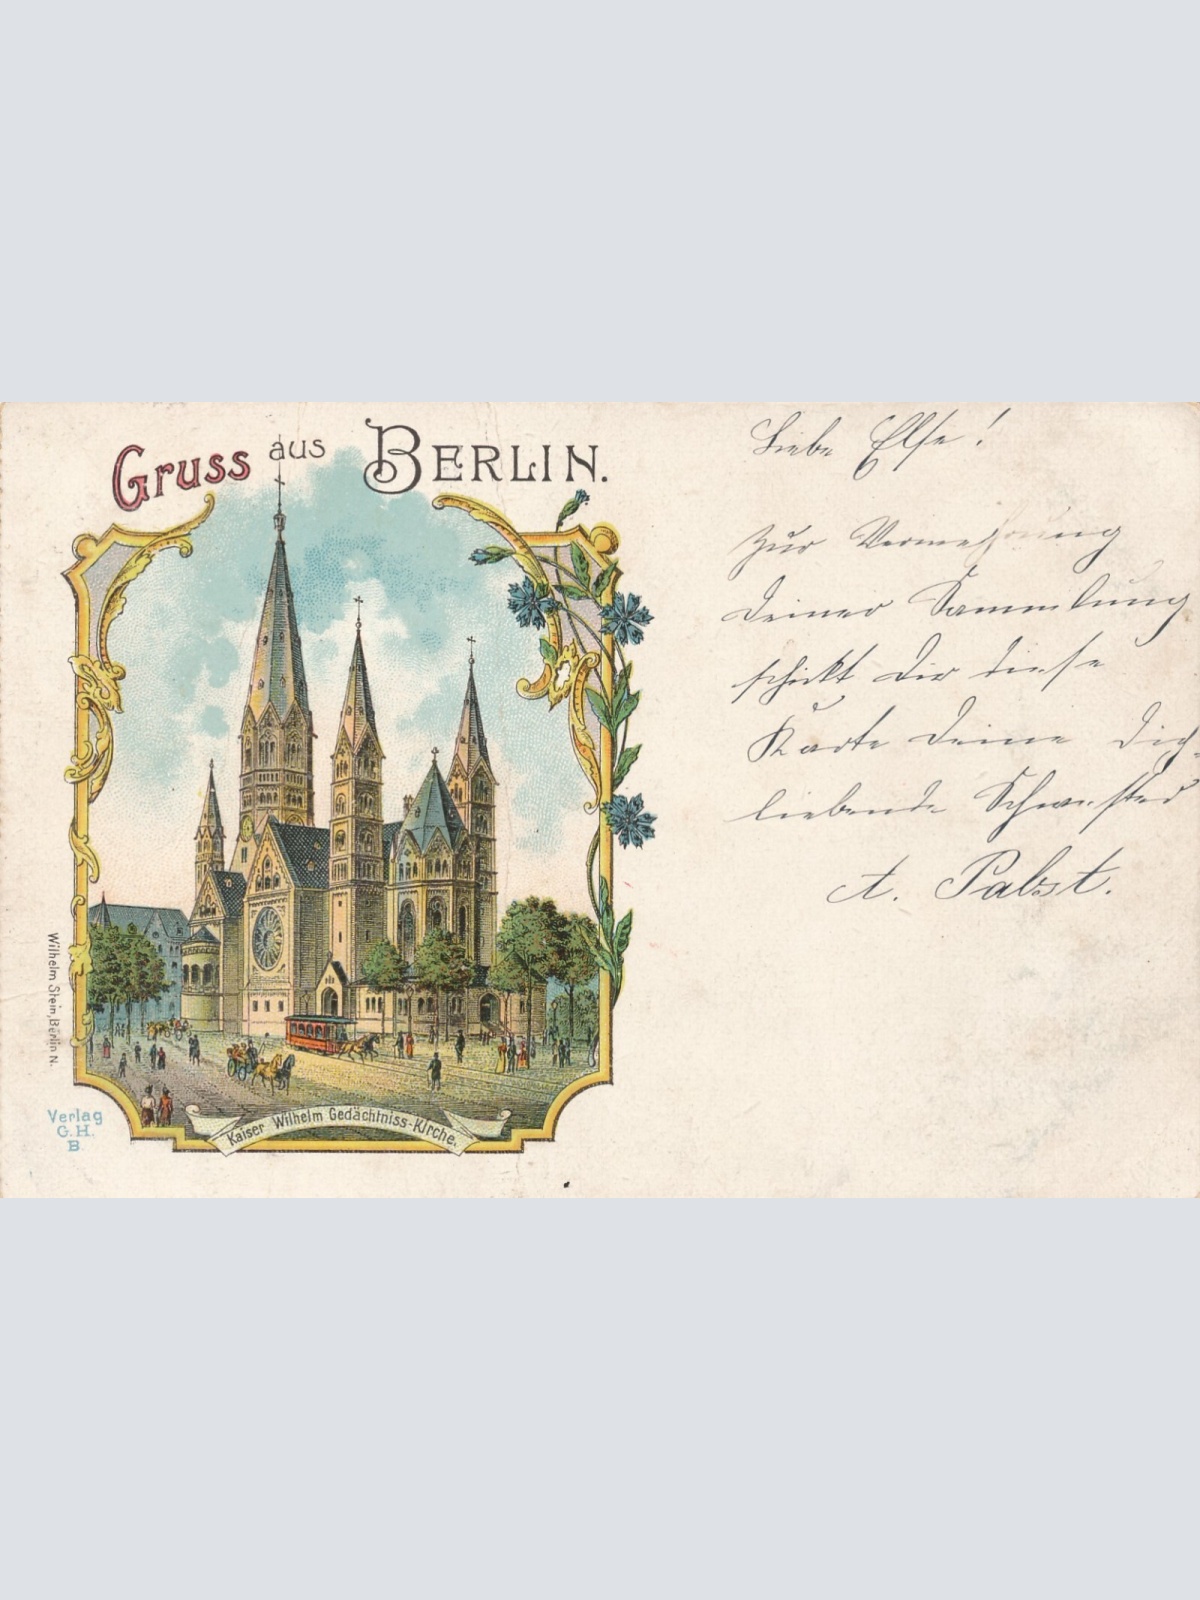 Gruss aus BERLIN.
Wilhelm Stein, Berlin N.
Verlag
G. H.
B.
Kaiser Wilhelm Gedächtniss-Kirche.
Liebe Else!
Zur Vermehrung
Deiner Sammlung
schickt Dir diese
Karte Deine Dich
liebende Schwester
A. Pabst.